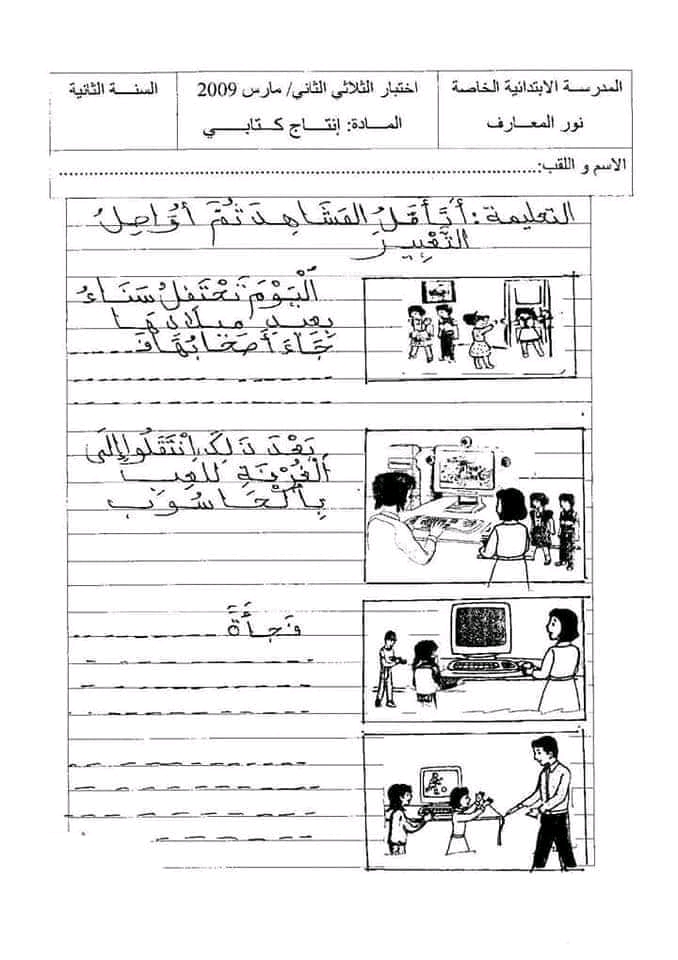 المدرسة الابتدائية الخاصة
نور المعارف
اختبار الثلاثي الثاني/ مارس 2009
المـــادة: إنتـــاج كـتـابـــي
السنـــة الثانية
الاسم و اللقب:
التعليمة: أَتَأَمَّلُ المَشَاهِدَ ثُمَّ أُوَاصِلُ
التَّعْبِيرَ
اَلْيَوْمَ تَحْتَفِلُ سَنَاءُ
بِعِيدِ مِيلَادِهَا
جَاءَ أَصْحَابُهَا فَ
بَعْدَ ذَلِكَ اِنْتَقَلُوا إِلَى
الْغُرْفَةِ لِلَّعِبِ
بِالْحَاسُوبِ
فَجْأَةً